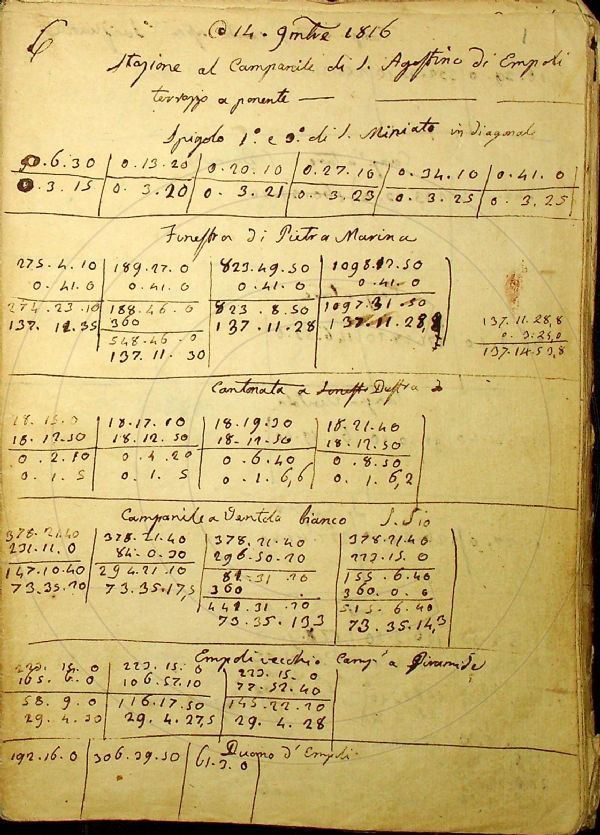 6
@ 14. 9mbre 1816
Stazione al Campanile di S. Agostino di Empoli
terrazzo a ponente
Spigolo 1º e 2º di S. Miniato in diagonale
0.6.30 0.13.20 0.20.10 0.27.10 0.34.10 0.41.0
0.3.15 0.3.20 0.3.21 0.3.23 0.3.25 0.3.25
Finestra di Pietra Marina
275.4.10 189.27.0 823.49.50 1098.12.50
0.41.0 0.41.0 0.41.0 0.41.0
274.23.10 188.46.0 823.8.50 1097.31.50
137.11.35 360 137.11.28 137.11.28,8 137.11.28,8
548.46.0 0.3.25,0
137.11.30 137.14.53,8
Cantonata a Destra
18.15.0 18.17.10 18.19.30 18.21.40
18.12.50 18.12.50 18.12.50 18.12.50
0.2.10 0.4.20 0.6.40 0.8.50
0.1.5 0.1.5 0.1.6,6 0.1.6,2
Campanile a Ventola bianco S. Pio
378.21.40 378.21.40 378.21.40 378.21.40
231.11.0 84.0.30 296.50.20 223.15.0
147.10.40 294.21.10 81.31.20 155.6.40
73.35.20 73.35.17,5 360 360.0.0
441.31.20 515.6.40
73.35.13,3 73.35.14,3
Empoli vecchio Camp.e a Piramide
223.15.0 223.15.0 223.15.0
165.6.0 106.57.10 77.52.40
58.9.0 116.17.50 145.22.20
29.4.30 29.4.27,5 29.4.28
Duomo d'Empoli
192.16.0 306.39.50 61.3.0